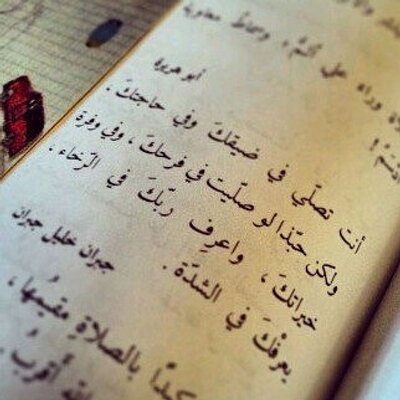 وراء على
أبو هريرة
أنت تصلّي في ضيقكَ وفي حاجتكَ،
ولكن حبّذا لو صلّيت في فرحكَ، وفي وفرة
خيراتكَ، واعرِف ربّكَ في الرّخاء،
يعرفْكَ في الشدّة.
جبران خليل جبران
بالصلاةِ مقيمُها،
أقربُ